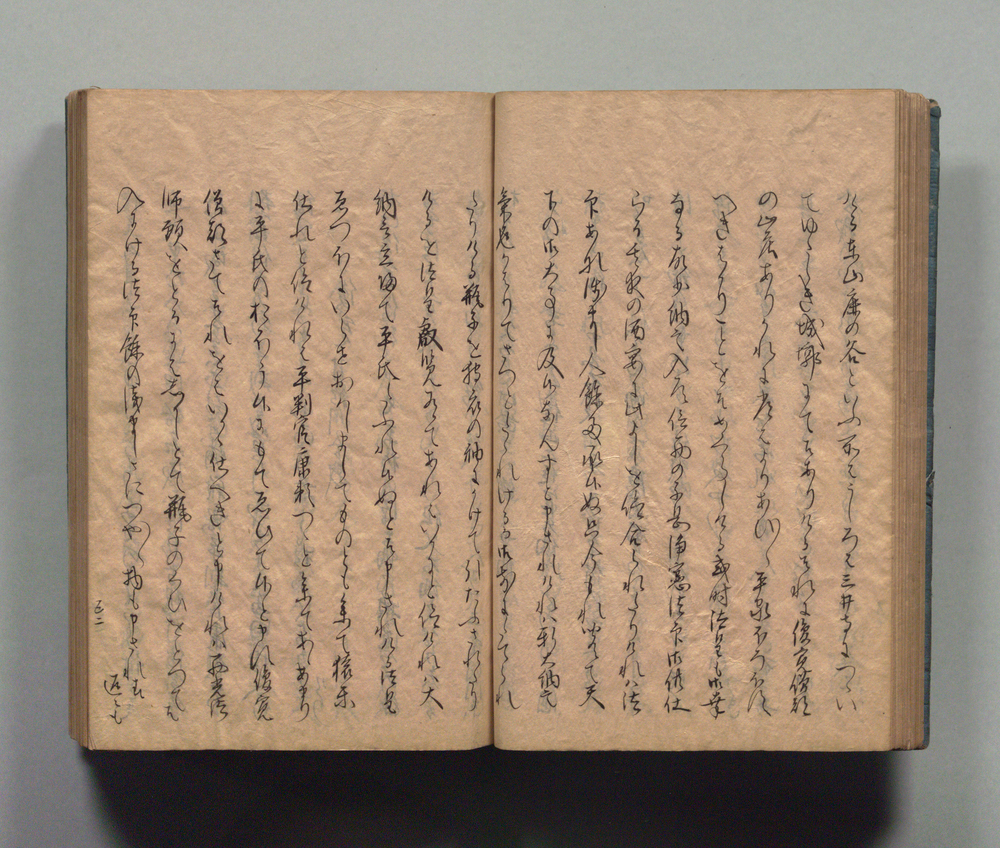 ける東山鹿の谷といふ所はうしろは三井寺につゝい
てゆゝしき城郭にてそありけるそれに俊寛僧都
の山庄ありかれに常はよりあひ〳〵平家ほろほす
へきはかりことをそめくらしける或時法皇も御幸
なる故少納言入道信西の子息浄憲法印御供仕
らる其夜の酒宴に此よしを仰合られたりけれは法
印あな浅まし人餘多承候ぬ只今もれ聞えて天
下の御大事に及候なんすと申されけれは新大納言
気色かはりてさつとたゝれけるか御前にたてられ
たりける瓶子を狩衣の袖にかけて引たふされたり
けるを法皇叡覧有てあれはいかにと仰けれは大
納言立帰て平氏たふれ候ぬとそ申されける法皇
ゑつほにいらせおはしましてものとも参て猿楽
仕れと仰けれは平判官康頼つと参てあゝあまり
に平氏のおほう候にもてゑひて候と申俊寛
僧都さてそれをはいかゝ仕へきと申けれは西光法
師頸をとるにはしかしとて瓶子のくひをとつてそ
入にける法印餘の浅ましさにつや〳〵物も申されす
返々も